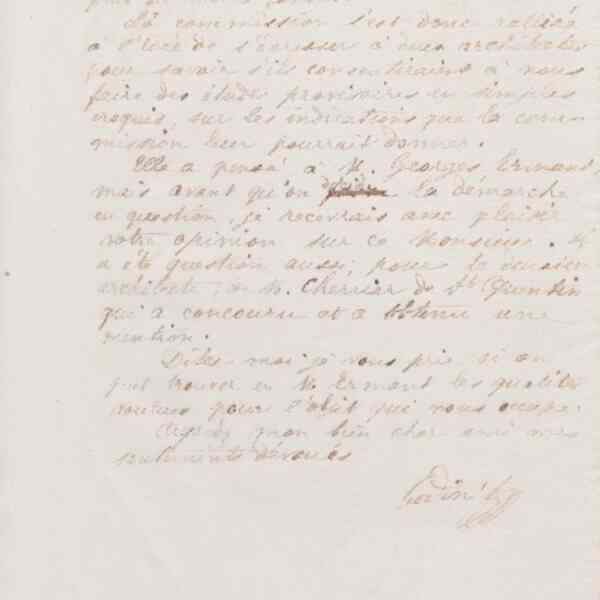 La commission s'est donc ralliée
à l'idée de s'adresser à deux architectes
pour savoir s'ils consentiraient à nous
faire des études provisoires en simples
croquis, sur les indications que la com-
mission leur pourrait donner.
Elle a pensé à M. Georges Ermant,
mais avant qu'on la démarche
en question, je recevrais avec plaisir
votre opinion sur ce Monsieur. Il
a été question aussi, pour le dernier
architecte, de M. Cherrier de St Quentin
qui a concouru et a obtenu une
mention.
Dites-moi je vous prie si on
peut trouver en M. Ermant les qualités
voulues pour l'objet qui nous occupe.
Agréez mon bien cher ami mes
sentiments dévoués
Godin